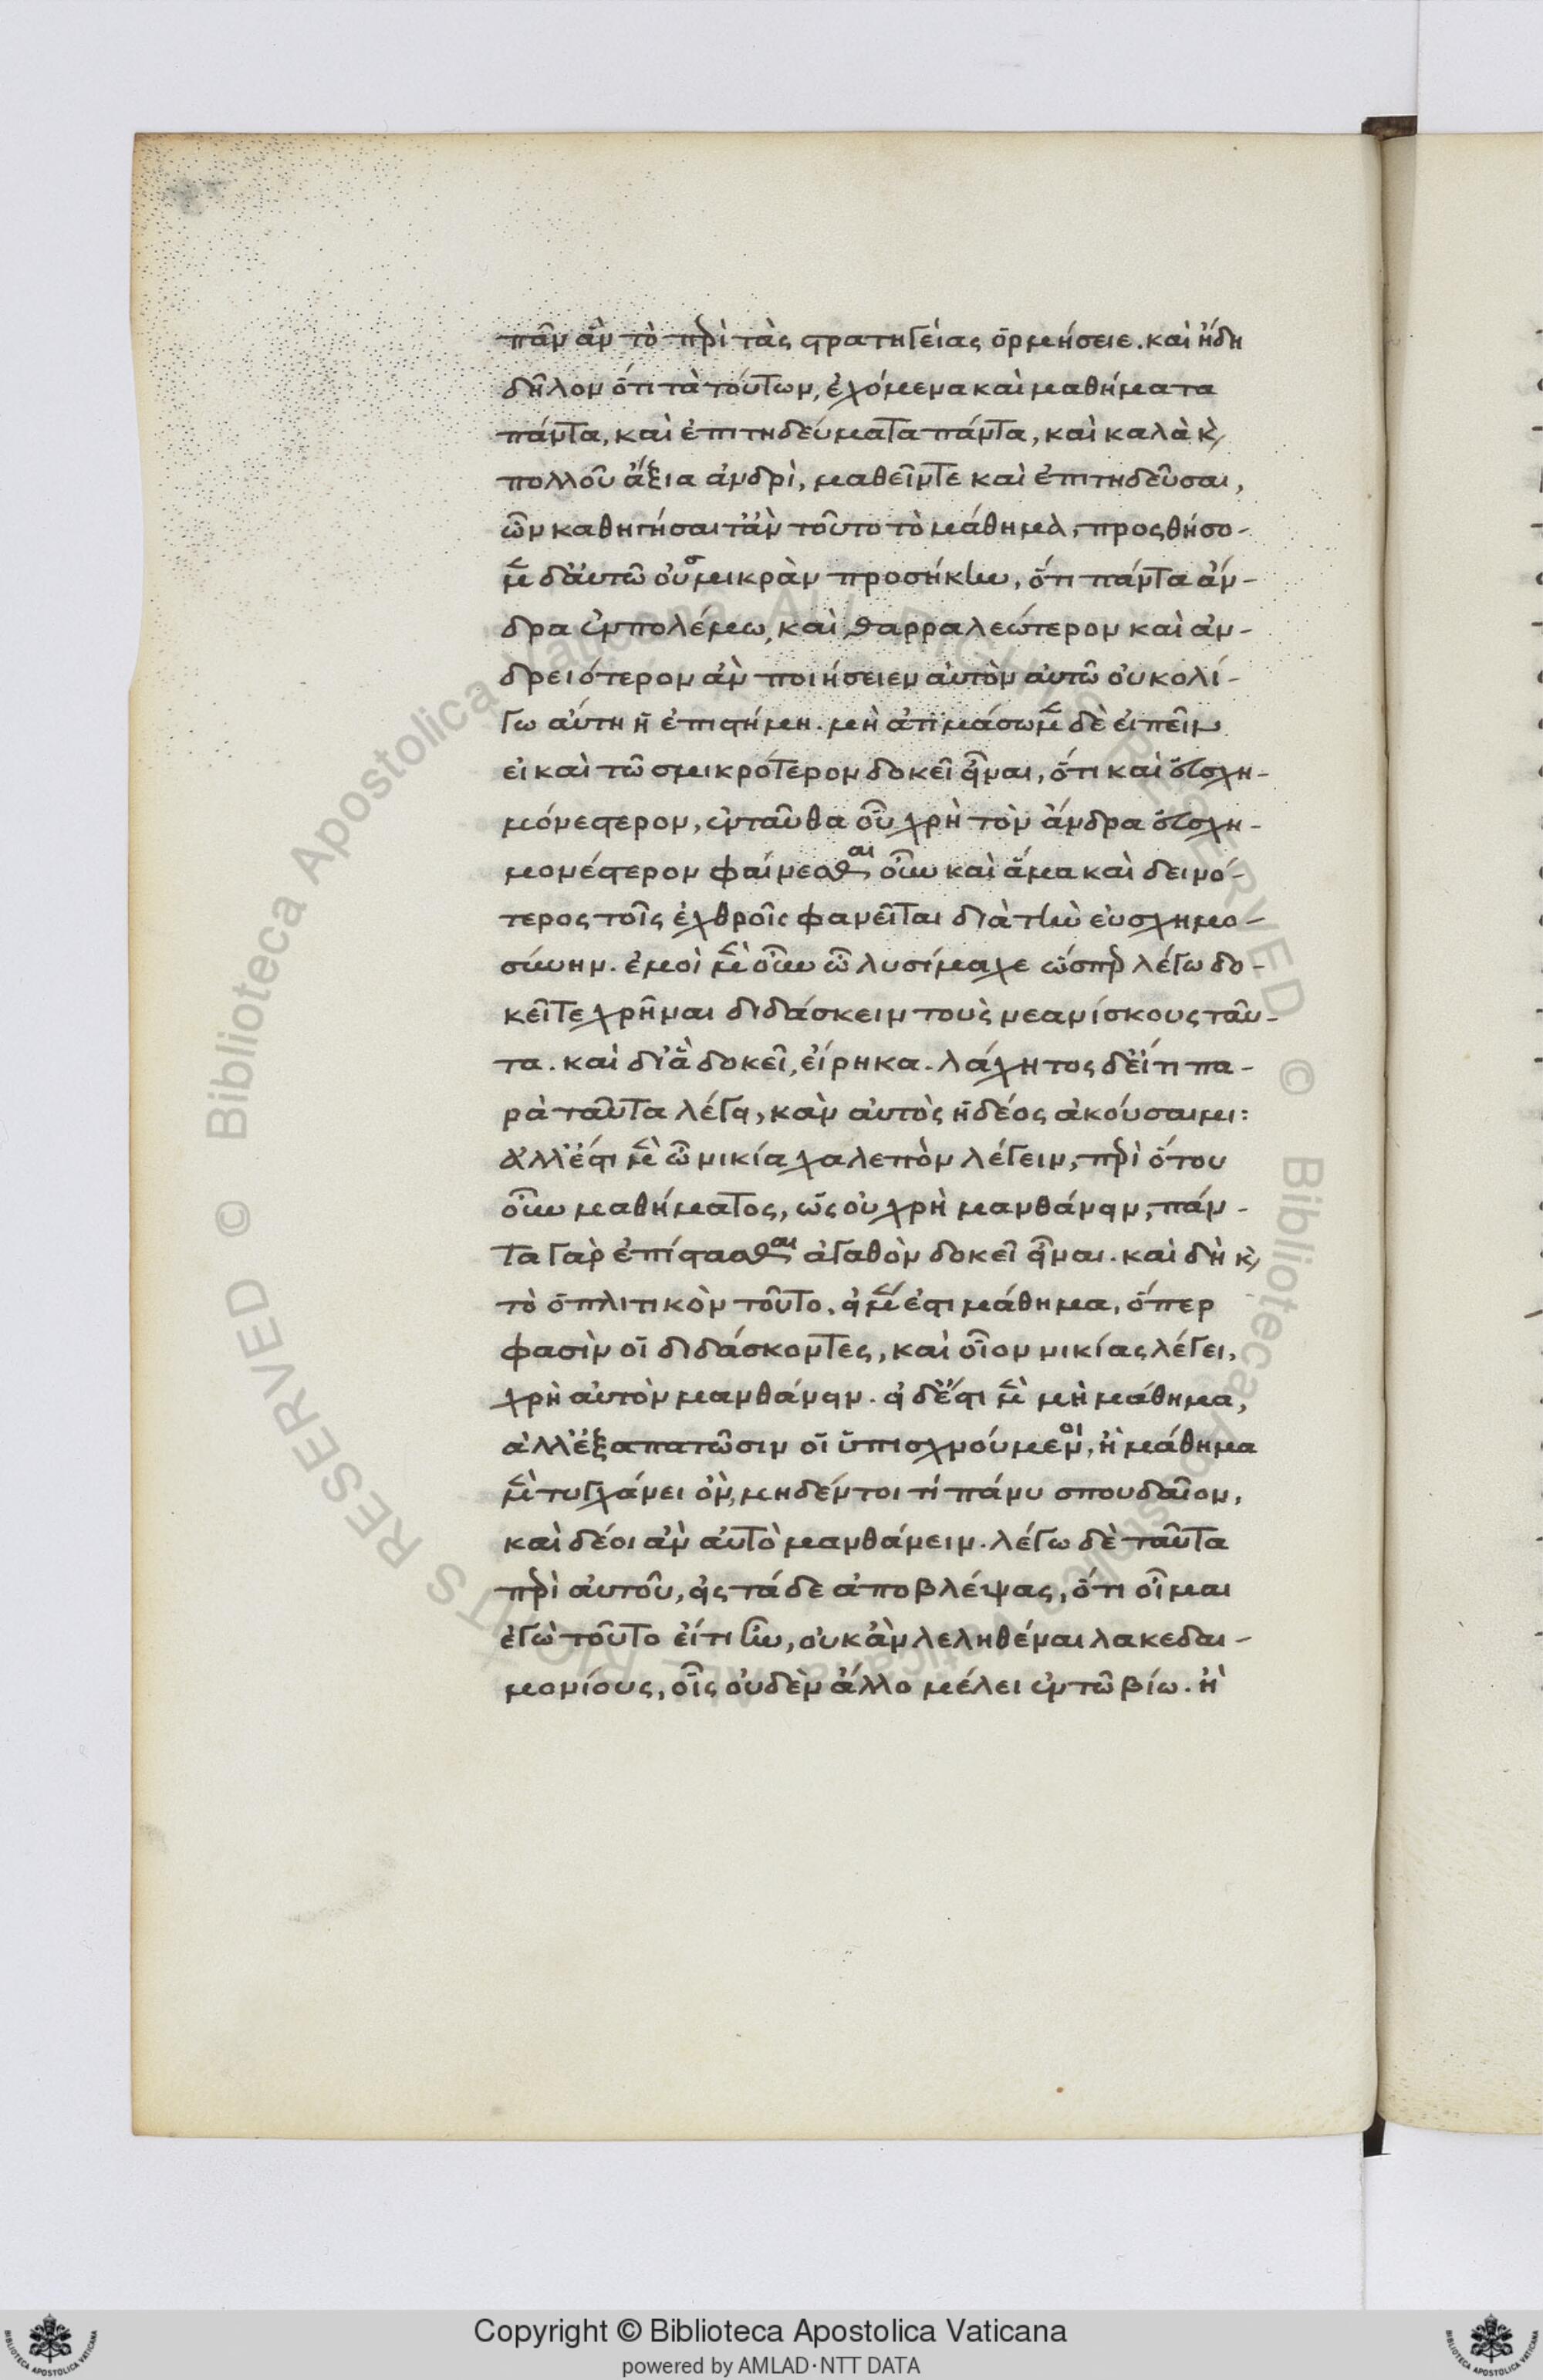 πᾶν ἂν τὸ περὶ τὰς στρατηγείας ὁρμήσειε. καὶ ἤδη
δῆλον ὅτι τὰ τούτων, ἐχόμενα καὶ μαθήματα
πάντα, καὶ ἐπιτηδεύματα πάντα, καὶ καλὰ κ̀
πολλοῦ ἄξια ἀνδρὶ, μαθεῖντε καὶ ἐπιτηδεῦσαι,
ὧν καθηγήσαιτ ἂν τοῦτο τὸ μάθημα, προςθήσο-
μεν δ' αὐτῶ οὐ σμικρὰν προσήκην, ὅτι πάντα ἄν-
δρα ἐν πολέμω, καὶ θαρραλεώτερον καὶ ἀν-
δρειότερον ἂν ποιήσειεν αὐτὸν αὐτῶ οὐκ ὀλί-
γω αὕτη ἡ ἐπιστήμη. μὴ ἀτιμάσωμεν δὲ εἰπεῖν
εἰ καὶ τῶ σμικρότερον δοκεῖ εἶναι, ὅτι καὶ εὐσχη-
μόνεστερον, ἐνταῦθα οὗ χρὴ τὸν ἄνδρα εὐσχη-
μονέστερον φαίνεσθαι οὗν καὶ ἅμα καὶ δεινό-
τερος τοῖς ἐχθροῖς φανεῖται διὰ τὴν εὐσχημο-
σύνην. ἐμοὶ μὲν οὖν ὦ λυσίμαχε ὥσπερ λέγω δο-
κεῖτε χρῆναι διδάσκειν τοὺς νεανίσκους ταῦ-
τα. καὶ δι' ἃ δοκεῖ, εἴρηκα. λάχητος δ' εἴ τι πα-
ρὰ ταῦτα λέγει, κἂν αὐτὸς ἡδέος ἀκούσαιμι:
ἀλλ' ἔστι μὲν ὦ νικία χαλεπὸν λέγειν, περὶ ὅτου
οὖν μαθήματος, ὡς οὐ χρὴ μανθάνειν, πάν-
τα γὰρ ἐπίστασθαι ἀγαθὸν δοκεῖ εἶναι. καὶ δὴ κ̀
τὸ ὁπλιτικὸν τοῦτο. εἰ μέν ἐστι μάθημα, ὅπερ
φασὶν οἱ διδάσκοντες, καὶ οἷον νικίας λέγει,
χρὴ αὐτὸν μανθάνειν. εἰ δ' ἔστι μὲν μὴ μάθημα,
ἀλλ' ἐξαπατῶσιν οἱ ὑπισχνούμενοι, ἢ μάθημα
μὲν τυγχάνει ὂν, μηδέντοι τί πάνυ σπουδαῖον,
καὶ δέοι ἂν αὐτὸ μανθάνειν. λέγω δὲ ταῦτα
περὶ αὐτοῦ, εἰς τάδε ἀποβλέψας, ὅτι οἶμαι
ἐγὼ τοῦτο εἴ τι ἦν, οὐκ ἂν λεληθέναι λακεδαι-
μονίους, οἷς οὐδὲν ἄλλο μέλει ἐν τῶ βίω. ἢ
Copyright © Biblioteca Apostolica Vaticana
powered by AMLAD·NTT DATA